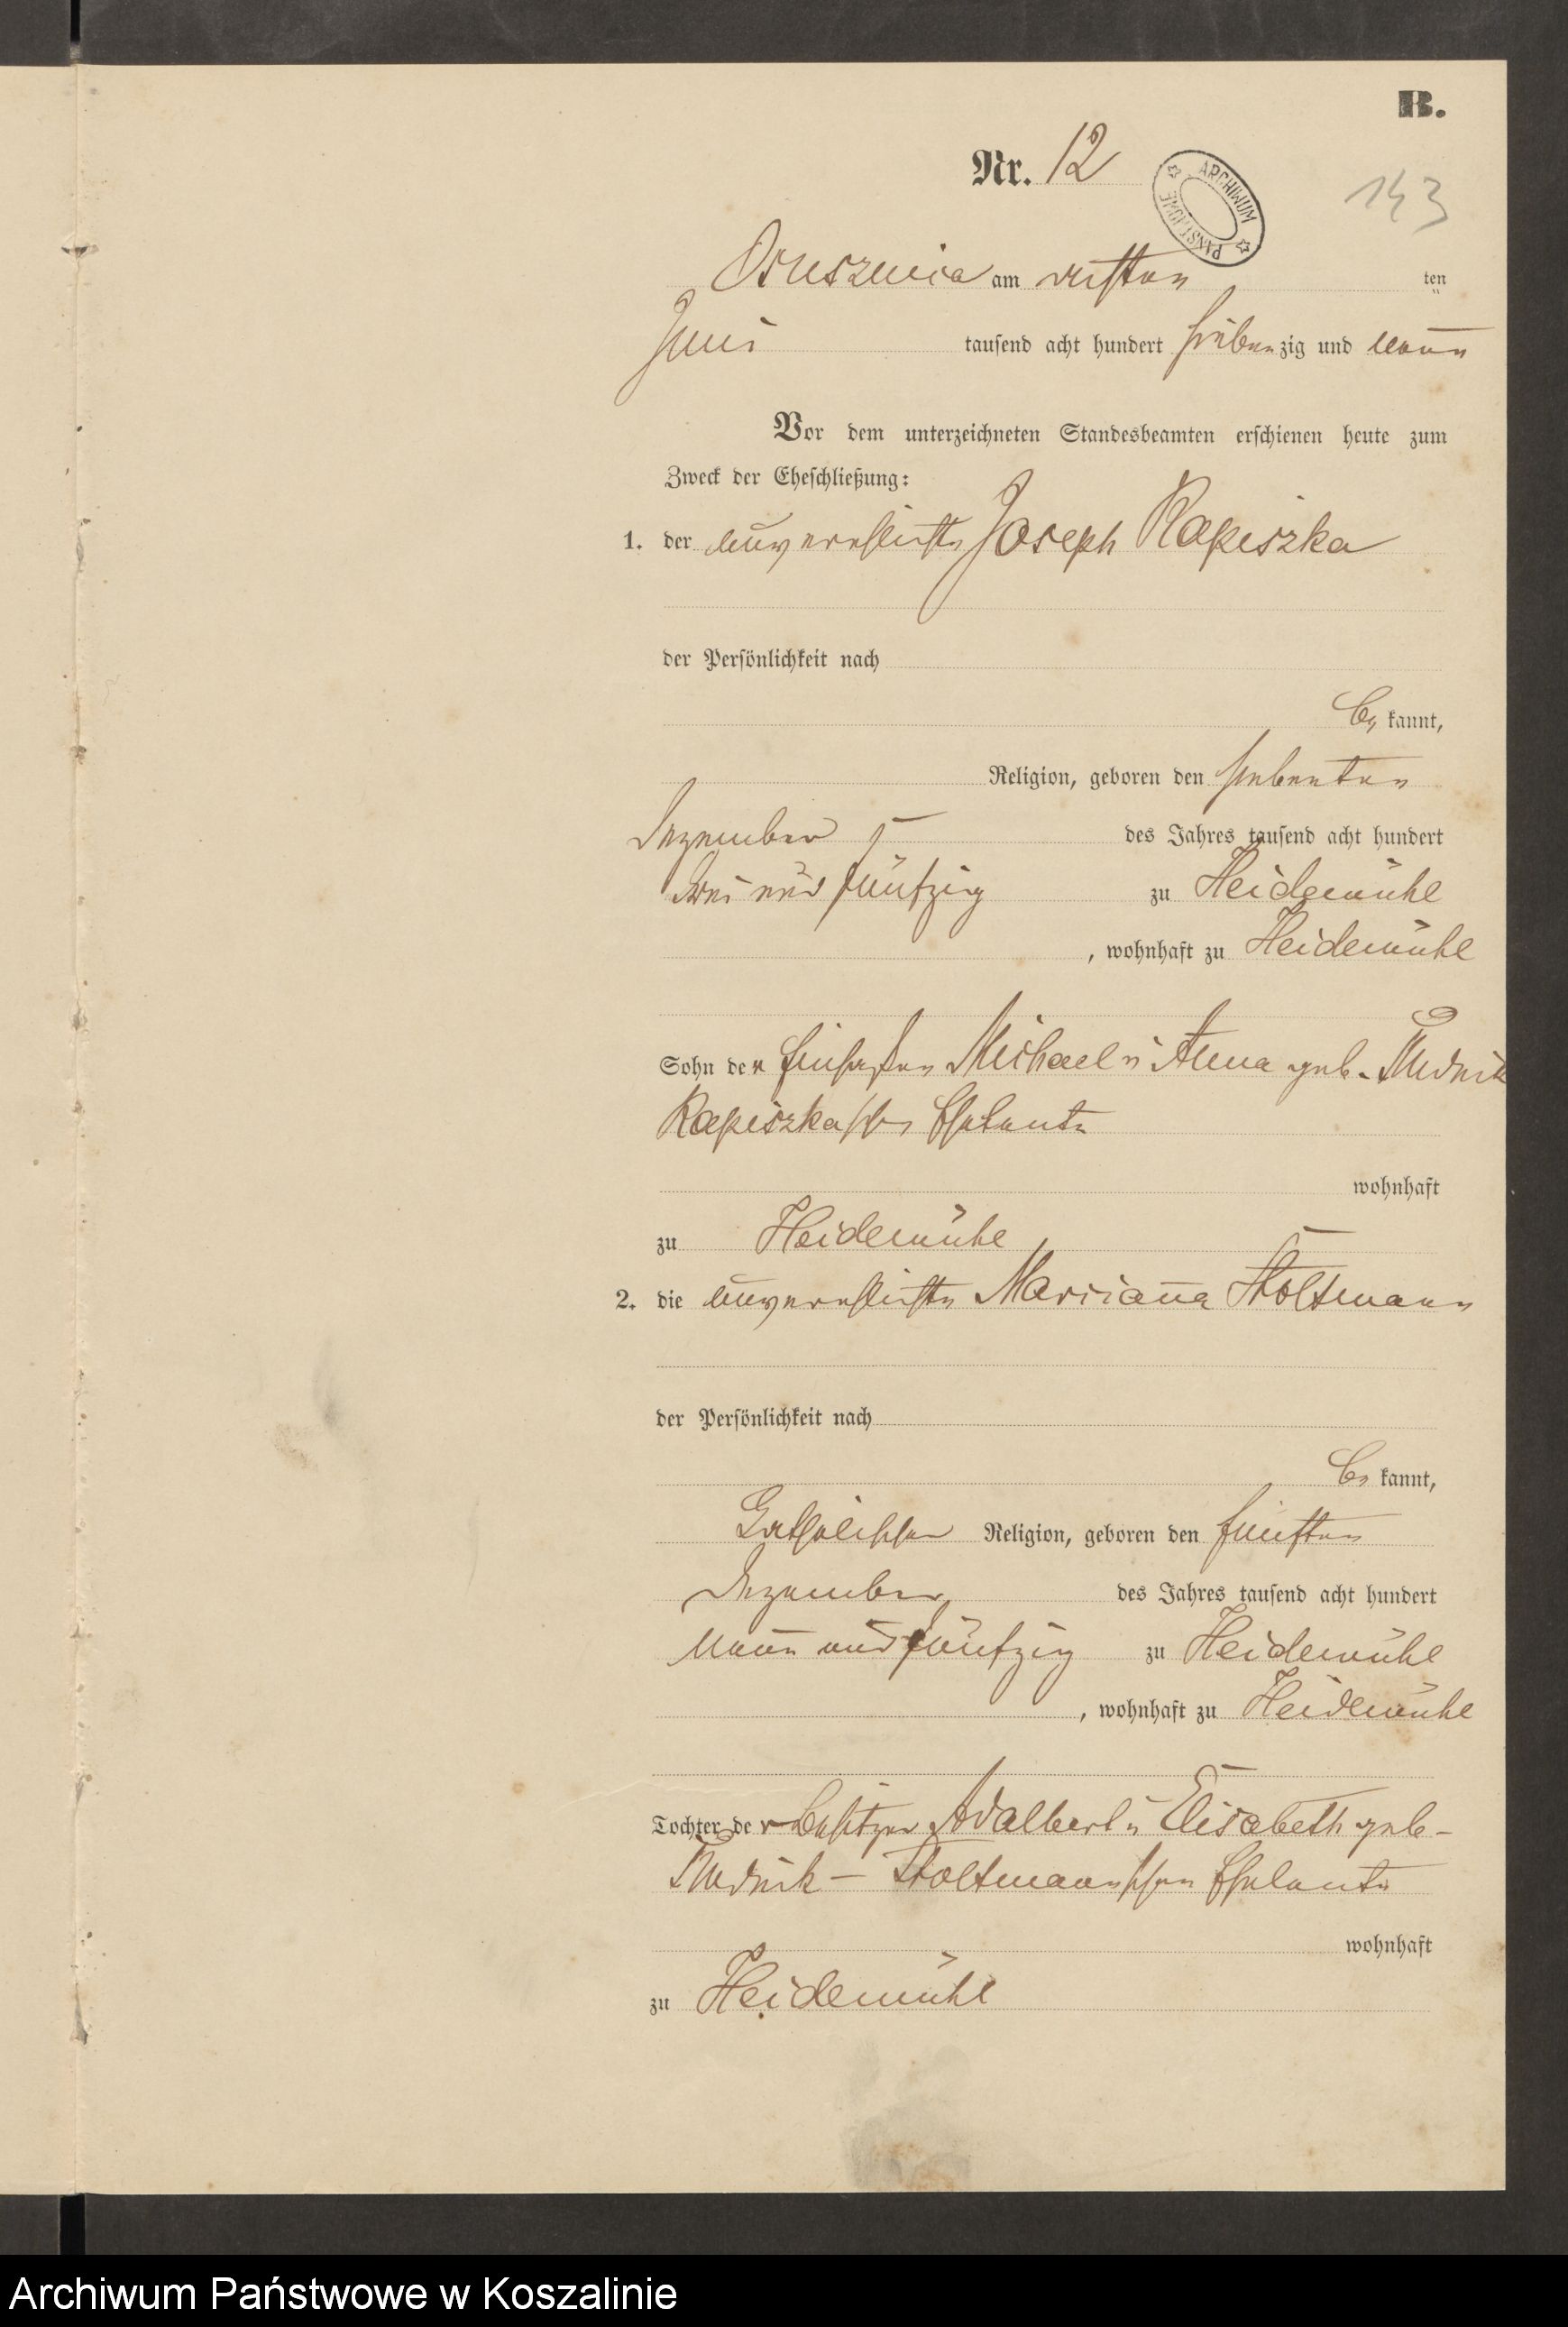 B.
Nr. 12
ARCHIWUM PAŃSTWOWE
143
Ossusznica am ersten ten
Juni tausend acht hundert siebenzig und neun
Vor dem unterzeichneten Standesbeamten erschienen heute zum
Zweck der Eheschließung:
1. der unverehlichte Joseph Rapiszka
der Persönlichkeit nach
be kannt,
Religion, geboren den siebenten
Dezember des Jahres tausend acht hundert
drei und fünfzig zu Heidemühl
, wohnhaft zu Heidemühl
Sohn der Einsaßen Michael u Anna geb. Rudnik
Rapiszka Eheleute
wohnhaft
zu Heidemühl
2. die unverehlichte Marrianna Stoltmann
der Persönlichkeit nach
be kannt,
Katholischer Religion, geboren den fünften
Dezember des Jahres tausend acht hundert
neun und fünfzig zu Heidemühl
, wohnhaft zu Heidemühl
Tochter der Besitzer Adalbert u Elisabeth geb-
Rudnik - Stoltmannschen Eheleute
wohnhaft
zu Heidemühl
Archiwum Państwowe w Koszalinie